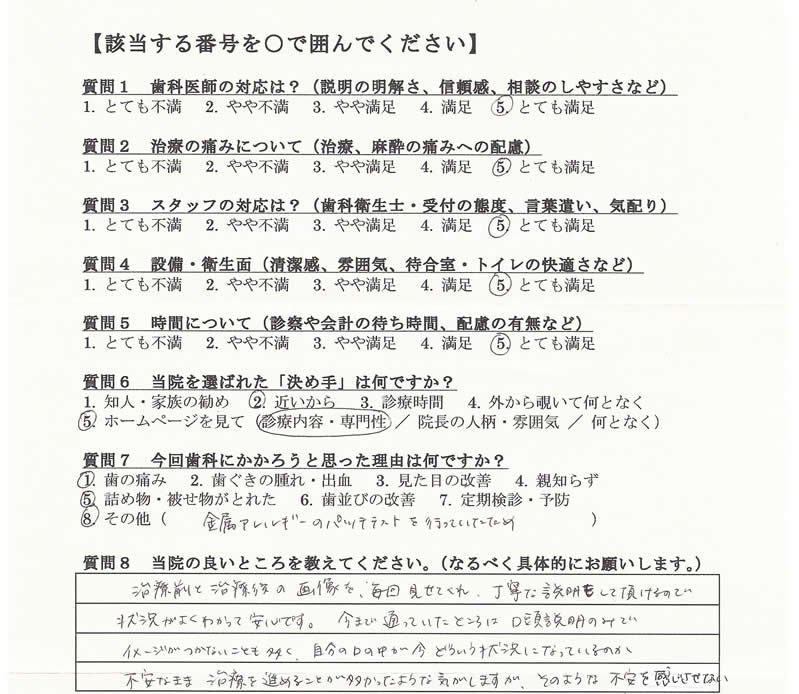 【該当する番号を○で囲んでください】
質問1 歯科医師の対応は?(説明の明解さ、信頼感、相談のしやすさなど)
1. とても不満 2. やや不満 3. やや満足 4. 満足 5. とても満足
質問2 治療の痛みについて(治療、麻酔の痛みへの配慮)
1. とても不満 2. やや不満 3. やや満足 4. 満足 5. とても満足
質問3 スタッフの対応は?(歯科衛生士・受付の態度、言葉遣い、気配り)
1. とても不満 2. やや不満 3. やや満足 4. 満足 5. とても満足
質問4 設備・衛生面(清潔感、雰囲気、待合室・トイレの快適さなど)
1. とても不満 2. やや不満 3. やや満足 4. 満足 5. とても満足
質問5 時間について(診察や会計の待ち時間、配慮の有無など)
1. とても不満 2. やや不満 3. やや満足 4. 満足 5. とても満足
質問6 当院を選ばれた「決め手」は何ですか?
1. 知人・家族の勧め 2. 近いから 3. 診療時間 4. 外から覗いて何となく
5. ホームページを見て(診療内容・専門性 / 院長の人柄・雰囲気 / 何となく)
質問7 今回歯科にかかろうと思った理由は何ですか?
1. 歯の痛み 2. 歯ぐきの腫れ・出血 3. 見た目の改善 4. 親知らず
5. 詰め物・被せ物がとれた 6. 歯並びの改善 7. 定期検診・予防
8. その他(金属アレルギーのパッチテストを行っていたため)
質問8 当院の良いところを教えてください。(なるべく具体的にお願いします。)
治療前と治療後の画像を、毎回見せてくれ、丁寧な説明もして頂けるので
状況がよくわかって安心です。今まで通っていたところは口頭説明のみで
イメージがつかないことも多く、自分の口の中が今どういう状況になっているのか
不安なまま治療を進めることが多かったような気がしますが、そのような不安を感じさせない